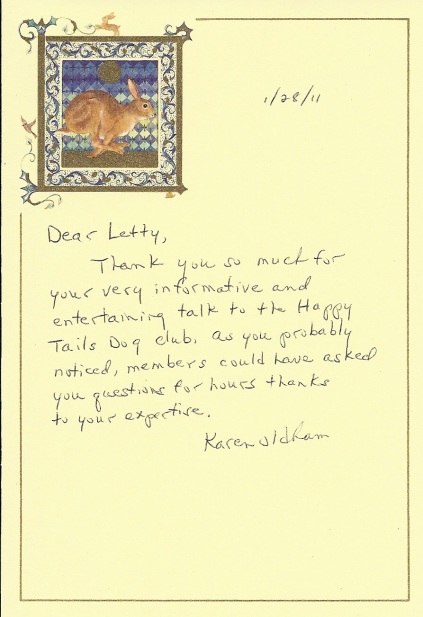 1/28/11
Dear Letty,
Thank you so much for
your very informative and
entertaining talk to the Happy
Tails Dog club. As you probably
noticed, members could have asked
you questions for hours thanks
to your expertise.
Karen Oldham